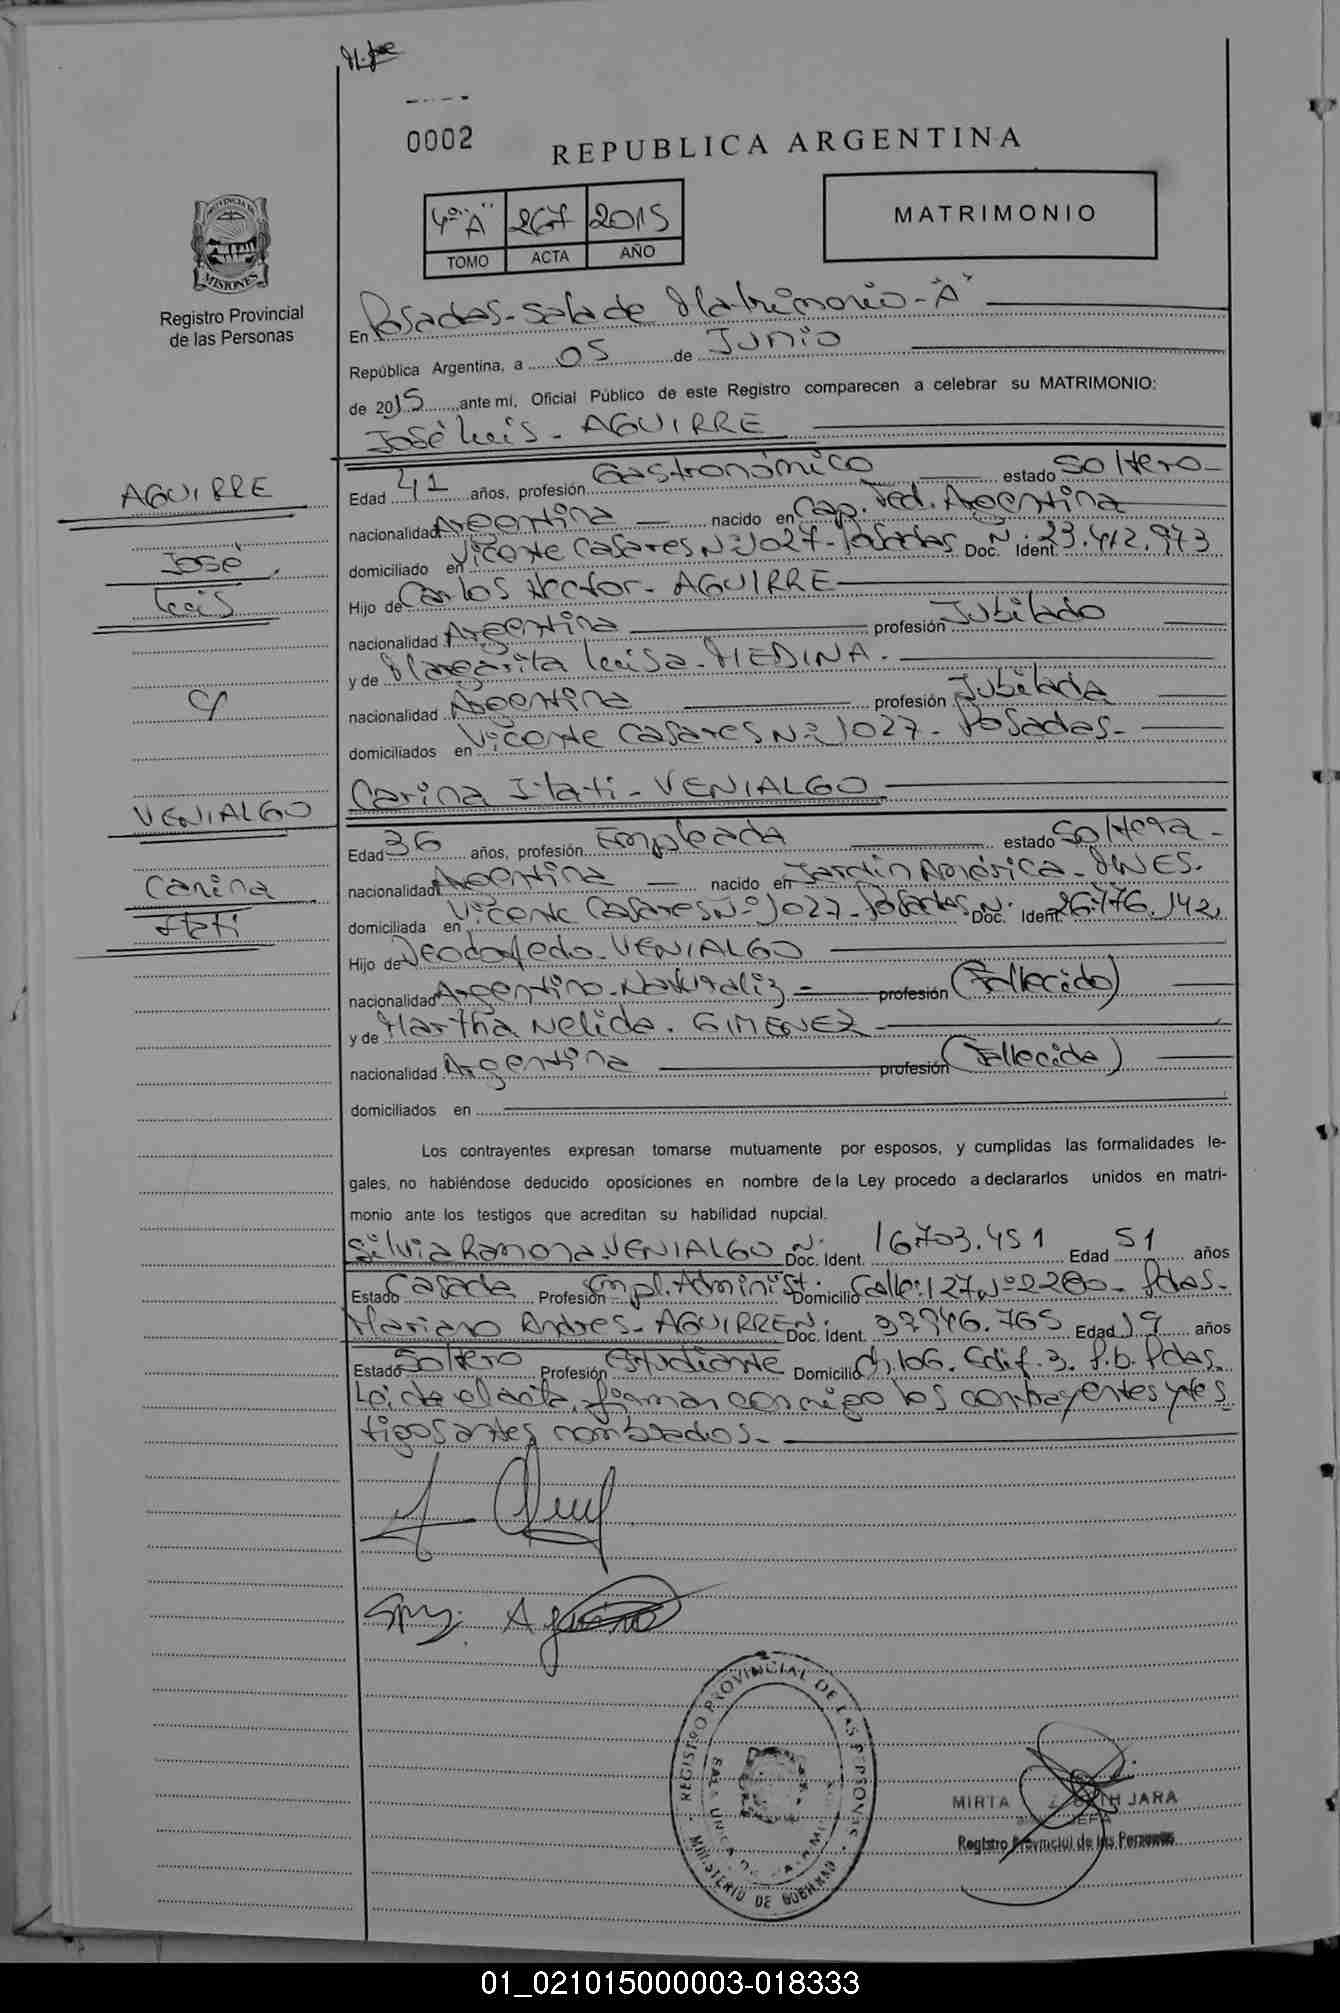 0002
REPUBLICA ARGENTINA
4º "A" 267 2015
TOMO ACTA AÑO
MATRIMONIO
PROVINCIA DE
MISIONES
Registro Provincial
de las Personas
En Posadas - Sala de Matrimonio - "A"
República Argentina, a 05 de Junio
de 2015 ante mí, Oficial Público de este Registro comparecen a celebrar su MATRIMONIO:
José Luis - AGUIRRE
AGUIRRE
José
Luis
Edad 41 años, profesión Gastronómico estado Soltero -
nacionalidad Argentina nacido en Cap. Fed. Argentina
domiciliado en Vicente Casares Nº 1027 - Posadas Doc. Ident. Nº: 23.412.973
Hijo de Carlos Hector - AGUIRRE
nacionalidad Argentina profesión Jubilado
y de Margarita Luisa - MEDINA.
nacionalidad Argentina profesión Jubilada
domiciliados en Vicente Casares Nº 1027 - Posadas -
Carina Itati - VENIALGO
VENIALGO
Carina
Itati
Edad 36 años, profesión Empleada estado Soltera -
nacionalidad Argentina nacido en Jardín América - MNES.
domiciliada en Vicente Casares Nº 1027 - Posadas Doc. Ident. Nº 26.776.142
Hijo de Deodofredo - VENIALGO
nacionalidad Argentino - Naturaliz profesión (Fallecido)
y de Martha Nelida - GIMENEZ
nacionalidad Argentina profesión (Fallecida)
domiciliados en
Los contrayentes expresan tomarse mutuamente por esposos, y cumplidas las formalidades le-
gales, no habiéndose deducido oposiciones en nombre de la Ley procedo a declararlos unidos en matri-
monio ante los testigos que acreditan su habilidad nupcial.
Silvia Ramona VENIALGO Nº Doc. Ident. 16703.451 Edad 51 años
Estado Casada Profesión Empl. Administ. Domicilio Calle: 127 Nº 2280 - Pdas -
Mariano Andres - AGUIRRE Nº Doc. Ident. 37.946.765 Edad 19 años
Estado Soltero Profesión Estudiante Domicilio Ch. 106. Edif. 3. P.b. Pdas.
Leida el acta, firman conmigo los contrayentes y tes
tigos antes nombrados -
REGISTRO PROVINCIAL DE LAS PERSONAS
MINISTERIO DE GOBIERNO
MIRTA JARA
JEFA
Registro Provincial de las Personas
01_021015000003-018333